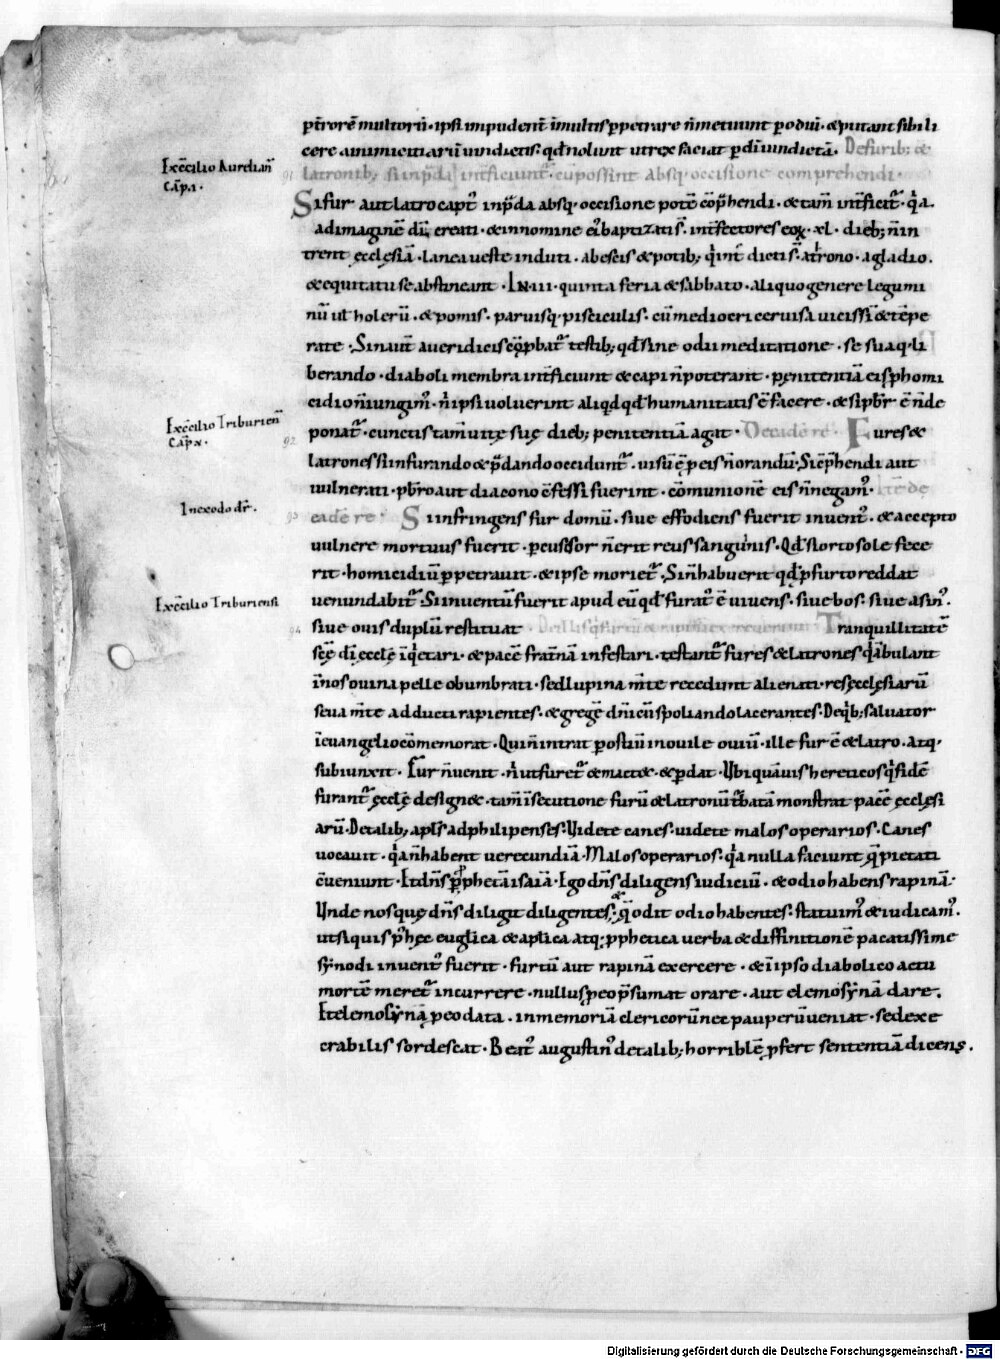 ptrorē multorū · ipsi impudent̄ ī multis ppetrare n̄ metuunt p odiū · & putant sibi li
cere a inimicitiarū uindictis · qd̄ nolunt ut rex faciat p dī uindictā · De furib; &
Ex c̄cilio Aurelian̄
Cap̄ · i ·
latronib; si in p̄da int̄ficiunt᷑ · cū possint absq; occisione comprehendi ·
91
Si fur aut latro capt᷒ in p̄da absq; occisione potē cōp̄hendi · & tam̄ int̄ficit᷑ · q̇a
ad imaginē dī creati · & in nomine ei᷒ baptizati s̄ · int̄fectores eoꝝ · xl · dieb; n̄ in
trent ęcclesiā · lanea ueste induti · ab escis & potib; q̇ int̄dicti s̄ · a trono · a gladio ·
& equitatu se abstineant · In · iii · quinta feria & sabbato · aliquo genere legumi
nū ut̄ holerū · & pomis · paruisq; pisciculis · cū mediocri ceruisa uicissī & tēpe
rate · Sin aut̄ a ueridicis cōp̄bat᷑ testib; qd̄ sine odii meditatione · se suaq; li
berando · diaboli membra int̄ficiunt & capi n̄ poterant · pęnitentiā eis p homi
cidio n̄ iungim᷒ · n̄ ipsi uoluerint aliqd̄ qd̄ humanitatis ē facere · & si p̄br̄ ē n̄ de
Ex c̄cilio Triburien̄
Cap̄ · x ·
ponat᷑ · cunctis tam̄ uitę suę dieb; penitentiā agat · De eadē re · Fures &
92
latrones si in furando & p̄dando occidunt᷑ · uisū ē p eis n̄ orandū · Si cp̄hendi aut
uulnerati · p̄br̄o aut diacono c̄fessi fuerint · cōmunionē eis n̄ negam᷒ · Itē de
In exodo dr̄ ·
93
eadē re · Si infringens fur domū · siue effodiens fuerit inuent᷒ · & accepto
uulnere mortuus fuerit · pcussor n̄ erit reus sanguinis · Qd̄ si orto sole fece
rit · homicidiū ppetrauit · & ipse moriet᷑ · Si n̄ habuerit qd̄ p furto reddat
Ex c̄cilio Triburiensi
uenundabit᷑ · Si inuentū fuerit apud eū qd̄ furat᷒ ē uiuens · siue bos · siue asin᷒ ·
94
siue ouis duplū restituat · De illis q furtū & rapinā exercuerint · Tranquillitatē
scę̄ dī eccłę īq̇etari · & pacē frat̄nā infestari · testant᷑ fures & latrones q̇ ābulant
ī nos ouina pelle obumbrati · sed lupina m̄te recedunt alienati · res ęcclęsiarū
seua m̄te adducti rapientes · & gregē dn̄icū spoliando lacerantes · De q̇b; saluator
ī euangelio cōmemorat · Qui n̄ intrat p ostiū in ouile ouiū · ille fur ē & latro · atq;
subiunxit · Fur n̄ uenit · n̄ ut furet᷑ & mactet · & pdat · Ubi quāuis hereticos q̇ fidē
furant᷑ ęcclę̄ designet · tam̄ ī secutione furū & latronū t̄batā monstrat pacē ęcclęsi
arū · De talib; apl̄s ad philipenses · Videte canes · uidete malos operarios · Canes
uocauit · q̇a n̄ habent uerecundiā · Malos operarios · q̇a nulla faciunt q̄ pietati
c̄ueniunt · Et dn̄s p pphetā isaiā · Ego dn̄s diligens iudiciū · & odio habens rapinā ·
Unde nos quę dn̄s diligit diligentes; & q̄ odit odio habentes · statuim᷒ & iudicam᷒ ·
ut si quis p᷒ hęc euglica & aplica atq; pphetica uerba & diffinitionē pacatissime
synodi inuent᷒ fuerit · furtū aut rapinā exercere · & ī ipso diabolico actu
mortē meret᷑ incurrere · nullus p eo p̄sumat orare · aut elemosynā dare ·
Et elemosyna p eo data · in memoriā clericorū nec pauperū ueniat · sed exe
crabilis sordescat · Beat᷒ augustin᷒ de talib; horriblē pfert sententiā dicens ·
Digitalisierung gefördert durch die Deutsche Forschungsgemeinschaft - DFG